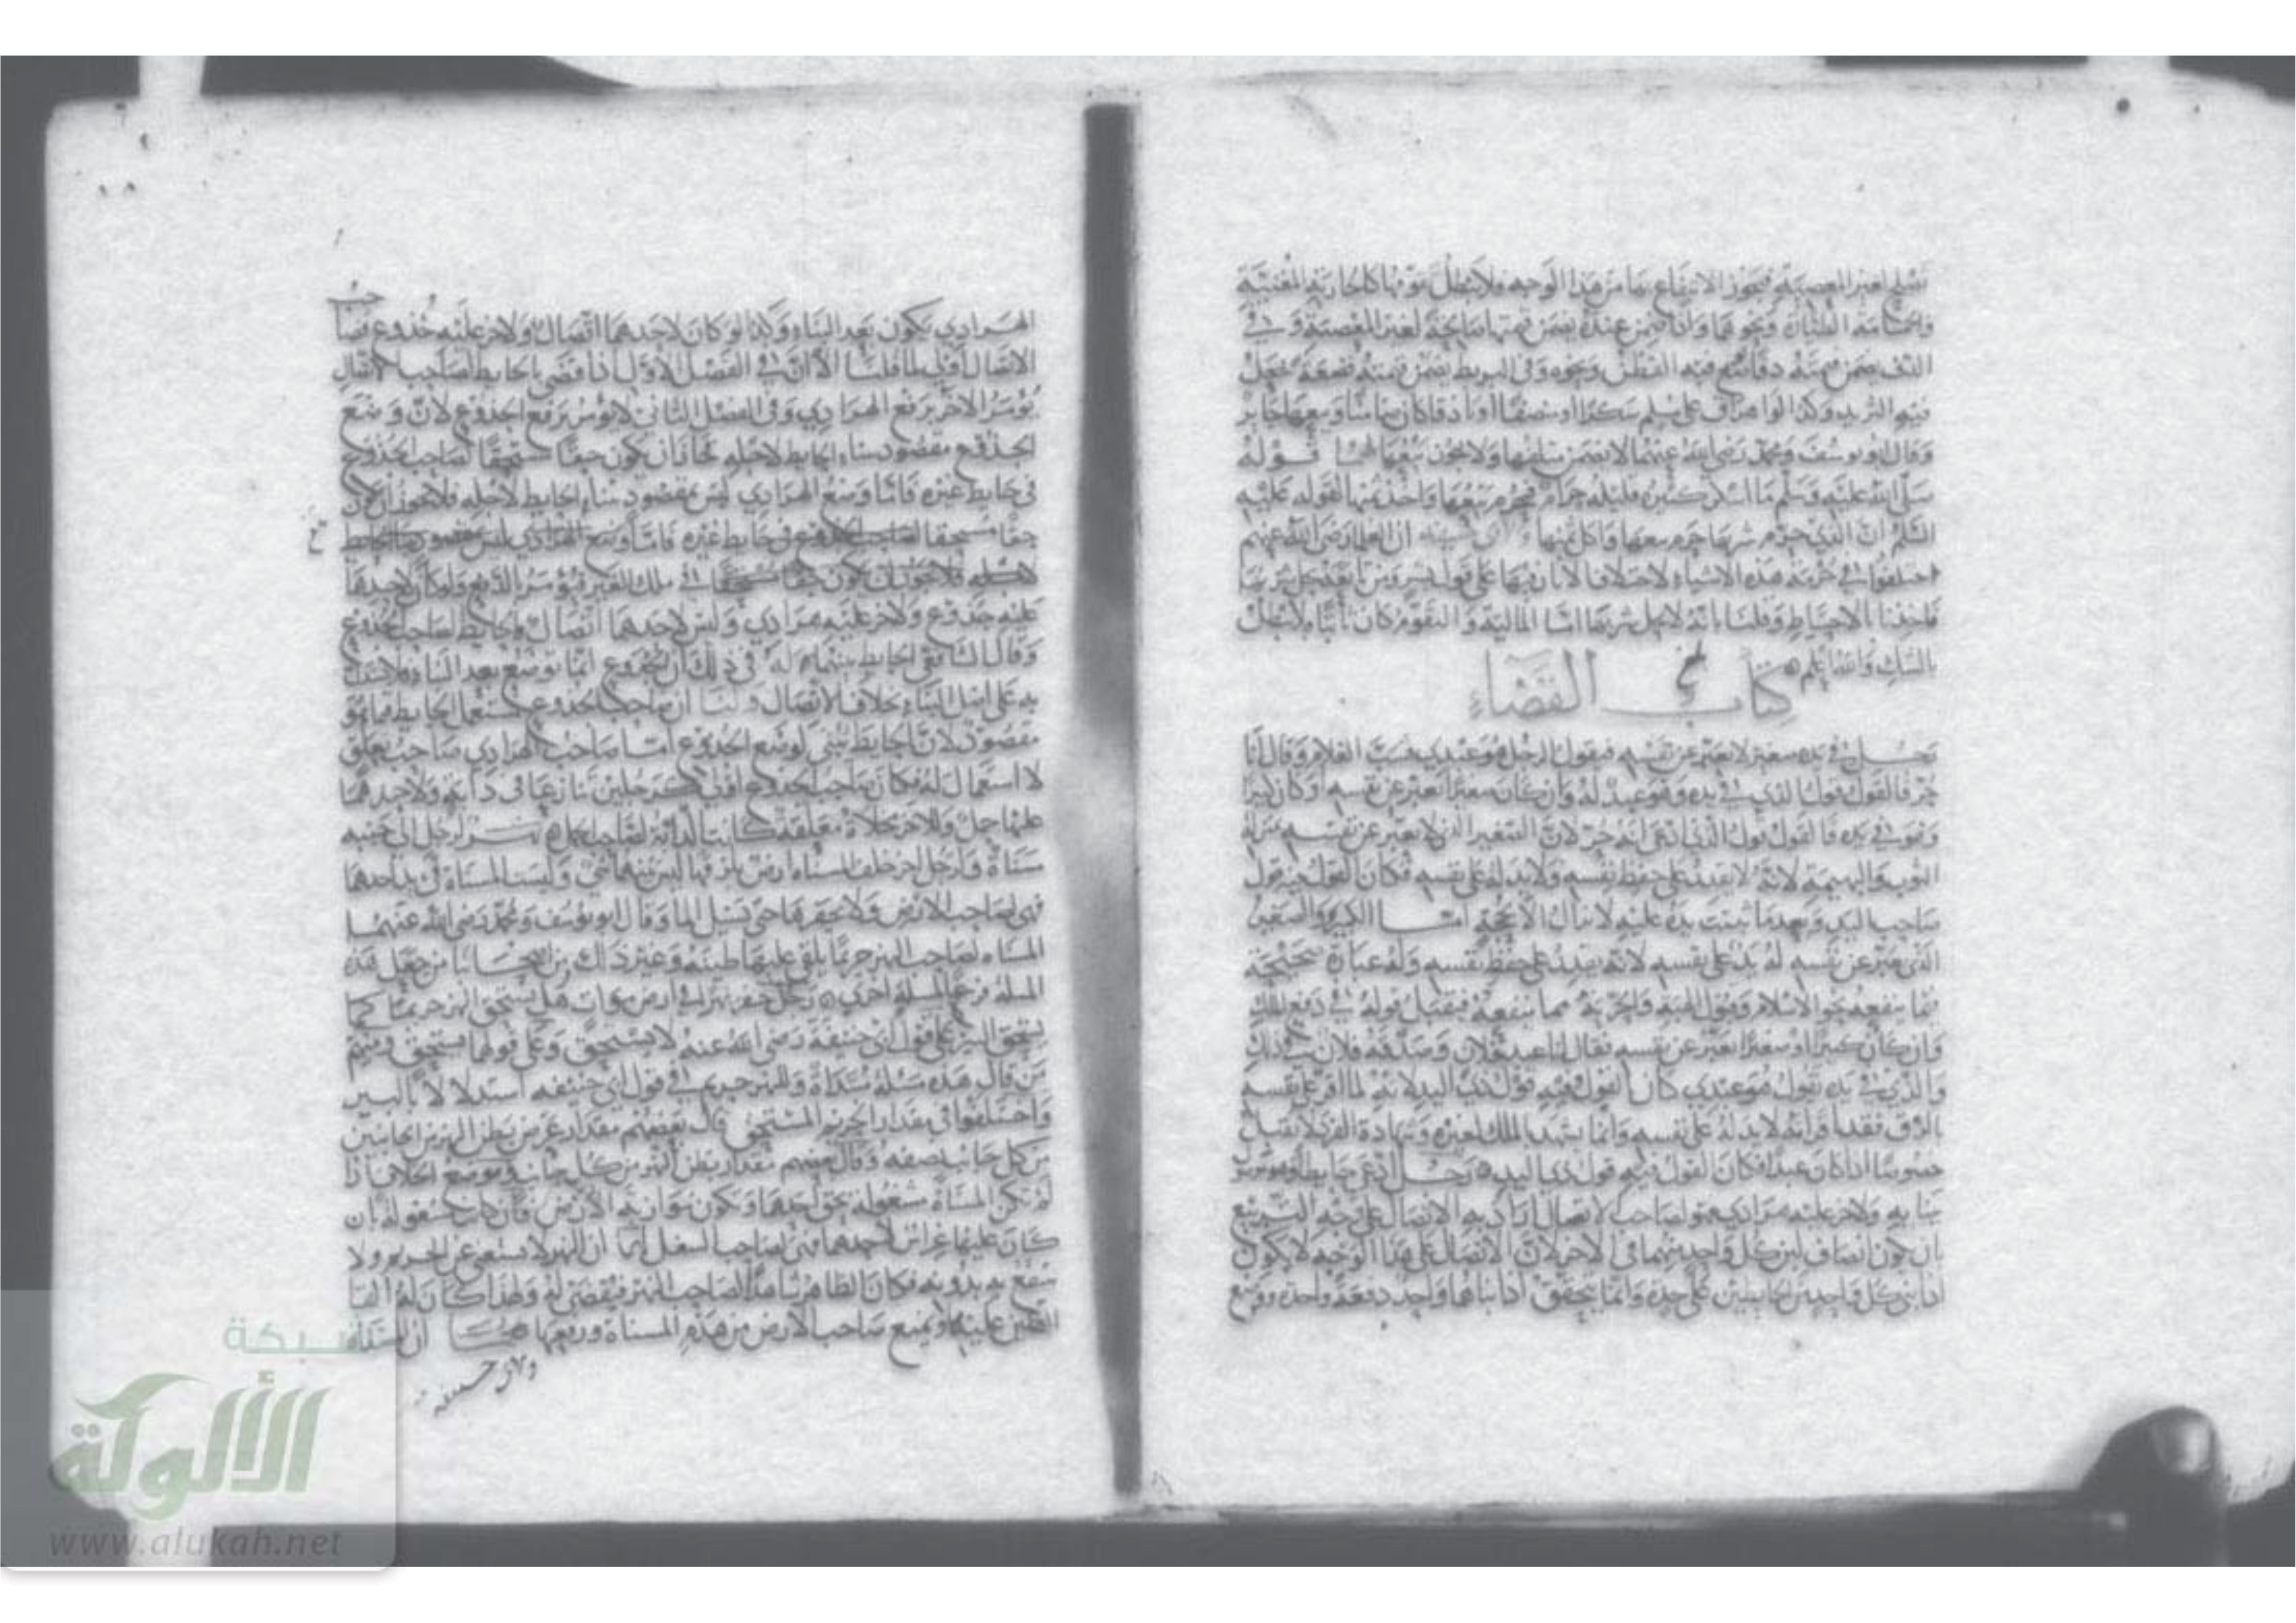 تصلح لغير المعصية فيجوز الانتفاع بها من هذا الوجه فلا يبطل تقومها كالجارية المغنية
ونحوها وإذا ضمن عنده يضمن قيمتها صالحة لغير المعصية وفي
الدف يضمن قيمته دفا فيه القطن ونحوه وفي البربط يضمن قيمته قصعة يجعل
فيه الثريد وكذا لو اهراق على مسلم سكرا او منصفا او باذقا كان ضامنا وبيعها جايز
وقال ابو يوسف ومحمد رضي الله عنهما لا يضمن متلفها ولا يجوز بيعها لهما قوله
صلى الله عليه وسلم ما اسكر كثيره فقليله حرام فيحرم بيعها واخذ ثمنها لقوله عليه
السلم ان الذي حرم شربها حرم بيعها واكل ثمنها ان العلما رضي الله عنهم
اختلفوا في حرمة هذه الاشياء
فاخذنا بالاحتياط وقلنا بانه لا يحل شربها اما المالية والتقوم كان ثابتا فلا يبطل
بالشك والله اعلم
كتاب القضاء
رجل في يده صغير لا يعبر عن نفسه فيقول الرجل هو عبدي الغلام وقال انا
حر فالقول قول الذي في يده وهو عبد له وان كان صغيرا يعبر عن نفسه او كان كبيرا
وهو في يده فالقول قول الذي ادعى انه حر لان الصغير الذي لا يعبر عن نفسه بمنزلة
الثوب والبهيمة لانه لا يقدر على حفظ نفسه ولا يد له على نفسه فكان القول فيه قول
صاحب اليد وبعدما ثبتت يده عليه لا تزال الا بحجة اما الكبير والصغير
الذي يعبر عن نفسه له يد على نفسه لانه يقدر على حفظ نفسه وله عبارة صحيحة
فيما ينفعه نحو الاسلام وقبول الهبة والحرية مما ينفعه فيقبل قوله في دفع الملك
وان كان كبيرا او صغيرا يعبر عن نفسه فقال انا عبد فلان وصدقه فلان في ذلك
والذي في يده يقول هو عبدي كان القول فيه قول ذي اليد لانه لما اقر على نفسه
بالرق فقد اقر انه لا يد له على نفسه وانما يشهد بالملك لغيره وشهادة الفرد لا تقبل
خصوصا اذا كان عبدا فكان القول فيه قول ذي اليد رجل ادعى حايطا وهو متصل
ببنايه وللاخر عليه هرادي فهو لصاحب الاتصال اراد به الاتصال على وجه التربيع
بان يكون انصاف لبن كل واحد منهما في الاخر لان الاتصال على هذا الوجه لا يكون
اذا بني كل واحد من الحايطين على حدة وانما يتحقق اذا بناهما واحد دفعة واحدة ووضع
الهرادي يكون بعد البناء وكذا لو كان لاحدهما اتصال وللاخر عليه جذوع فصاحب
الاتصال اولى لما قلنا الا ان في الفصل الاول اذا قضى بالحايط لصاحب الاتصال
يؤمر الاخر برفع الهرادي وفي الفصل الثاني لا يؤمر برفع الجذوع لان وضع
الجذوع مقصود بناء الحايط لاجله فجاز ان يكون حقا مستحقا لصاحب الجذوع
في حايط غيره فاما وضع الهرادي ليس بمقصود بناء الحايط لاجله فلا يجوز ان يكون
حقا مستحقا لصاحب الجذوع في حايط غيره فاما وضع الهرادي ليس بمقصود بناء الحايط
لاجله فلا يجوز ان يكون حقا مستحقا في ملك الغير فيؤمر بالرفع ولو كان لاحدهما
عليه جذوع وللاخر عليه هرادي وليس لاحدهما اتصال فالحايط لصاحب الجذوع
وقال الشافعي الحايط بينهما له في ذلك ان الجذوع انما توضع بعد البناء
على اصل البناء بخلاف الاتصال ولنا ان صاحب الجذوع مستعمل الحايط بما هو
مقصود لان الحايط يبنى لوضع الجذوع اما صاحب الهرادي صاحب تعلق
لا استعمال له فكان صاحب الجذوع اولى كرجلين تنازعا في دابة ولاحدهما
عليها حمل وللاخر مخلاة معلقة كانت الدابة لصاحب الحمل نهر لرجل الى جنبه
مسناة ولرجل اخر خلف المسناة ارض تلزقها ليس بينهما شي وليست المسناة في يد احدهما
فهي لصاحب الارض ولا يحفرها حتى يسيل الما وقال ابو يوسف ومحمد رضي الله عنهما
المسناه لصاحب النهر حريما يلقي عليها طينه وغير ذلك من اصحابنا من جعل هذه
المسلة فرع لمسلة اخرى رجل حفر نهرا في ارض موات هل يستحق النهر حريما كما
يستحق البير على قول ابي حنيفة رضي الله عنه لا يستحق وعلى قولهما يستحق ومنهم
من قال هذه مسئلة مبتداة وللنهر حريم في قول ابي حنيفه استدلالا بالبير
واختلفوا في مقدار الحريم المستحق قال بعضهم مقدار عرض بطن النهر من الجانبين
من كل جانب نصفه وقال بعضهم مقدار بطن النهر من كل جانب وموضع الخلاف اذا
لم تكن المسناة مشغولة بحق احدهما وتكون موازية الارض فان كانت مشغولة بان
كان عليها غراس لاحدهما فهي لصاحب الشغل لهما ان النهر لا يستغني عن الحريم ولا
ينتفع به بدونه فكان الظاهر شاهدا لصاحب النهر فيقضى له ولهذا كان له القا
الطين عليها ويمنع صاحب الارض من هدم المسناة ورفعها ان المسناة
ولابي حنيفه